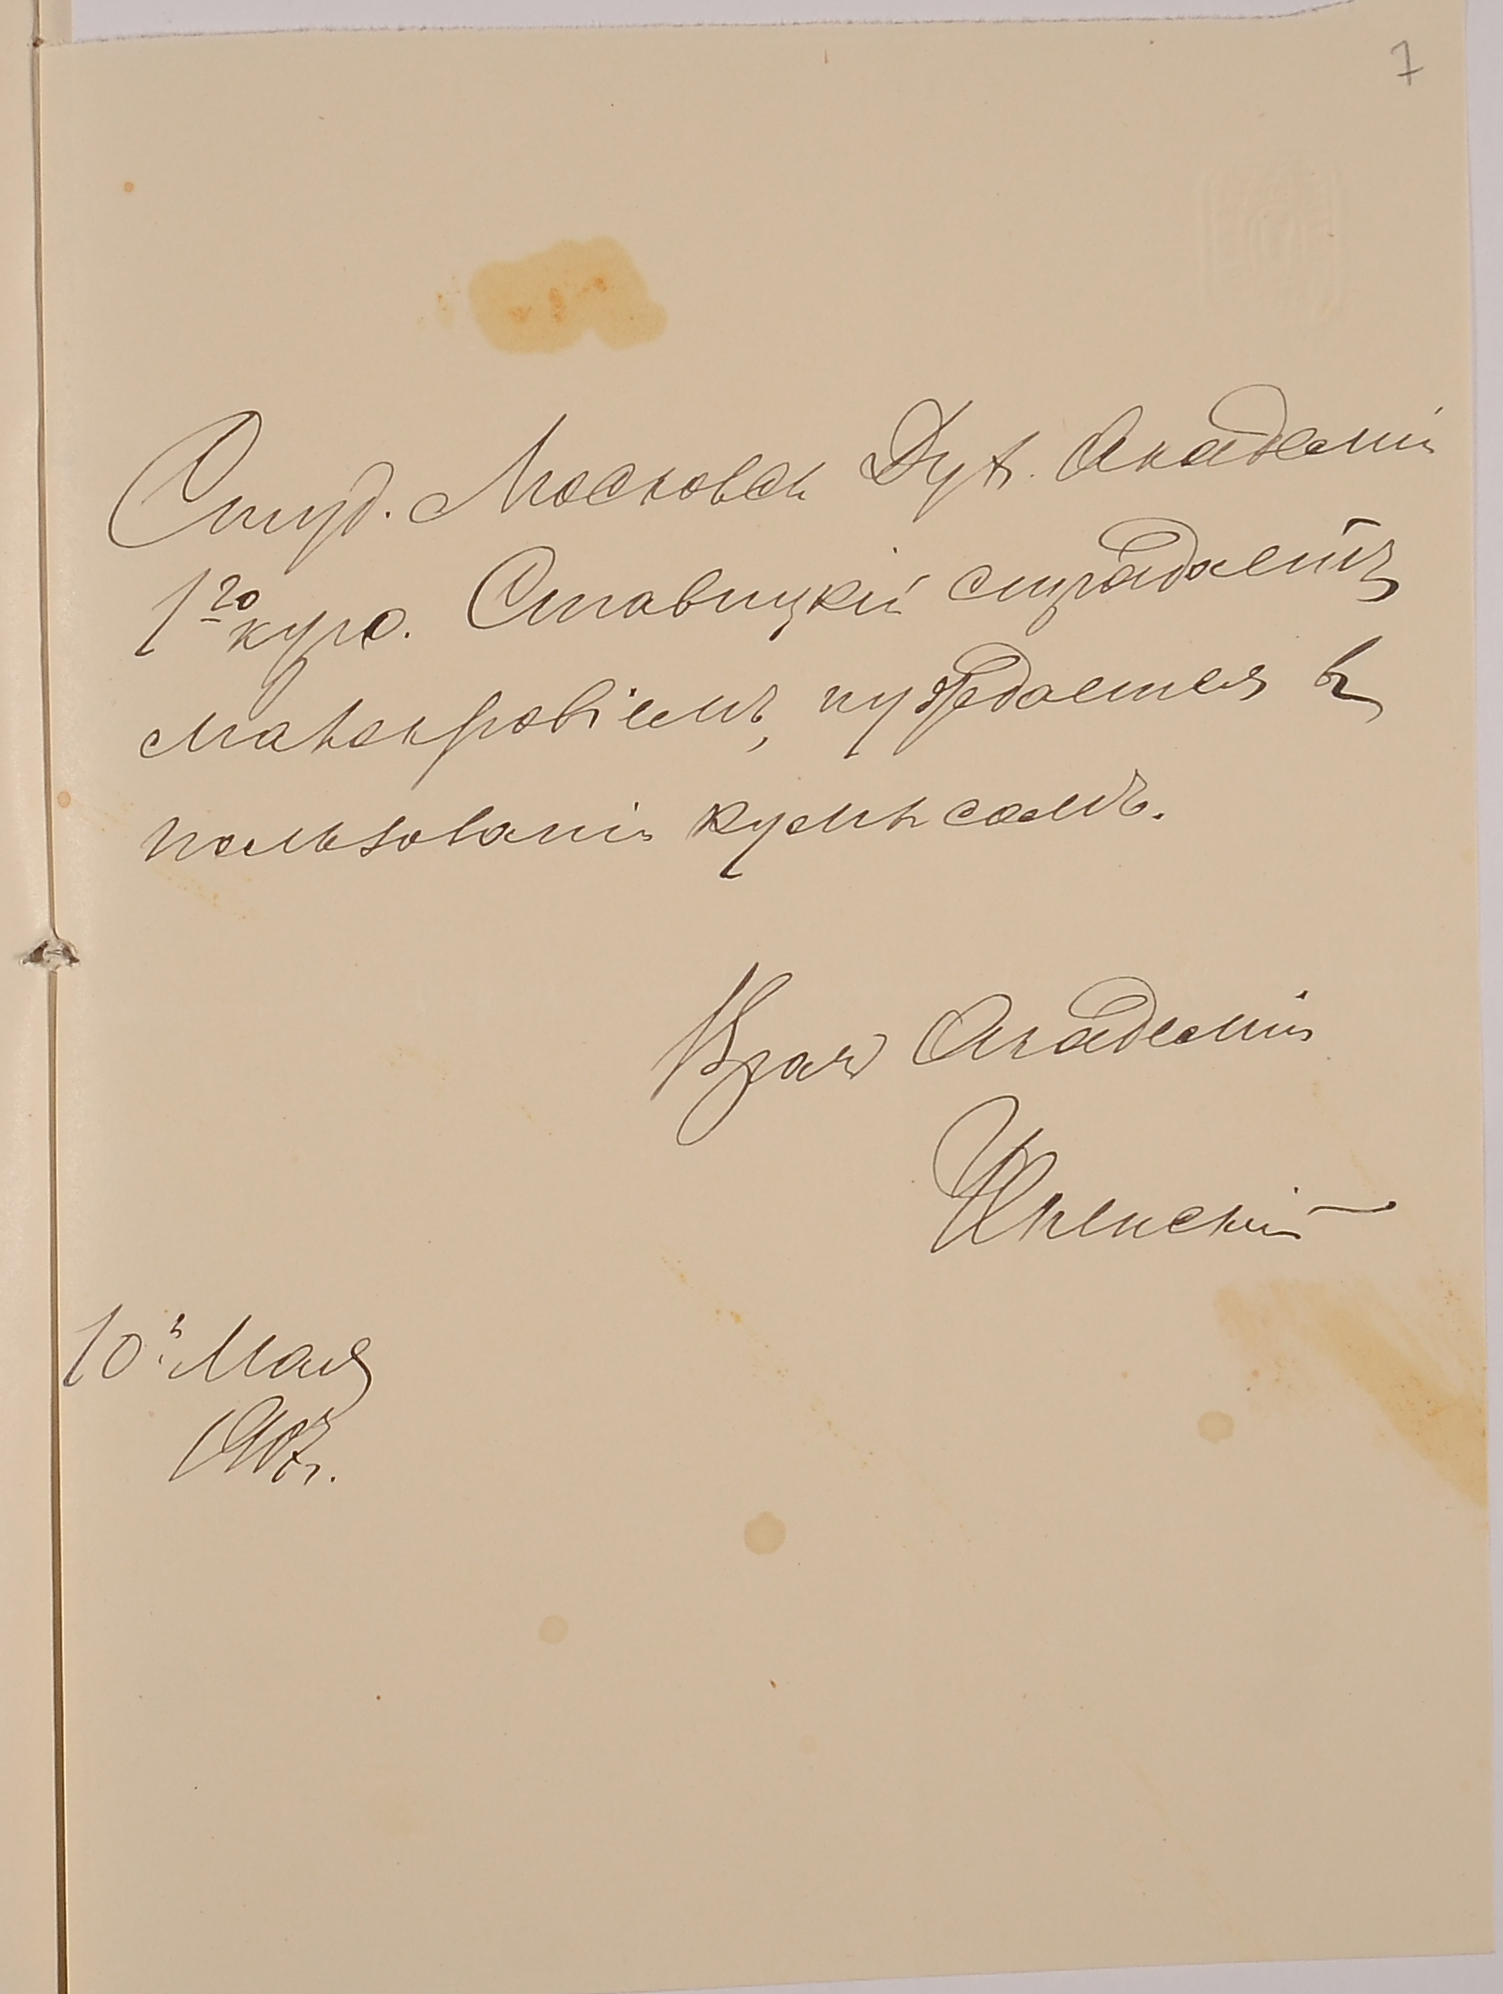 7
Студ. Московск Дух. Академіи
1го курс. Ставицкій страдаетъ
малокровіемъ, нуждается въ
пользованіи кумысомъ.
Врач Академіи
10го Мая
1907 г.